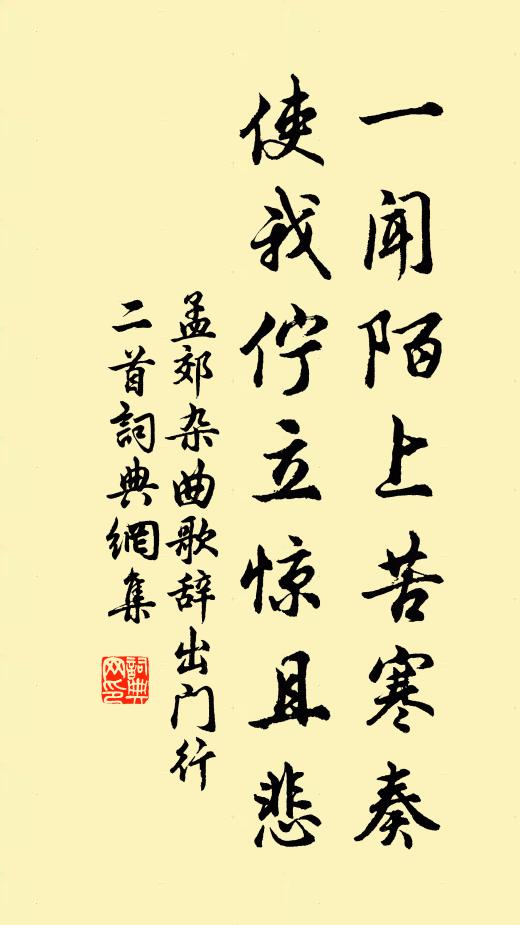 一闻陌上苦寒奏
使我佇立惊且悲
孟郊杂曲歌辞出门行
二首詞典網集
詞典网印